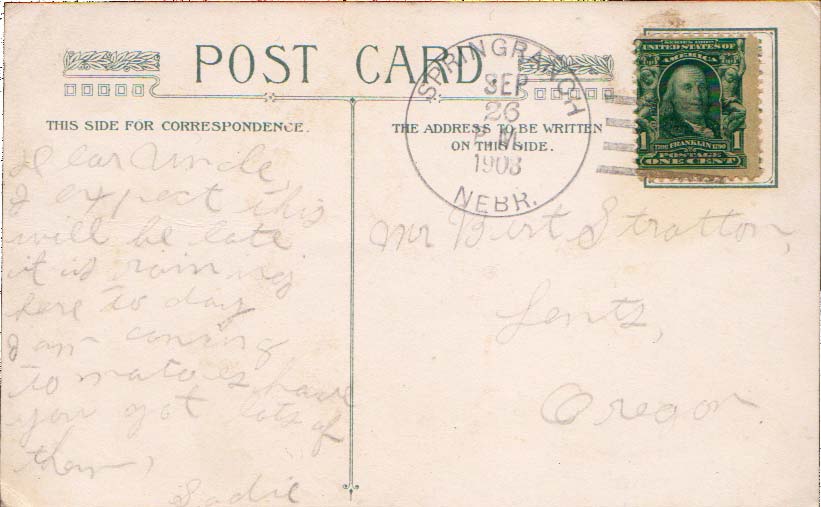 POST CARD
THIS SIDE FOR CORRESPONDENCE.
THE ADDRESS TO BE WRITTEN
ON THIS SIDE.
SPRINGRANCH
SEP
26
P M
1908
NEBR.
SERIES 1902
UNITED STATES OF
AMERICA
1 1
1706 FRANKLIN 1790
POSTAGE
ONE CENT
Dear Uncle,
I expect this
will be late
it is raining
here to day
I am caning
to matoes have
you got lots of
them,
Sadie
Mr Burt Stratton,
Lents,
Oregon